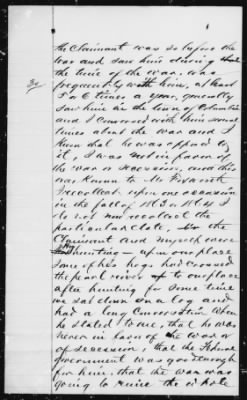 the Claimant was so before the
war and saw him during
the time of the war. was
frequently with him, at least
3d
5 or 6 times a year, generally
saw him in the town of Columbia
and I conversed with him several
times about the war and I
Know that he was opposed to
it, I was not in favor of
the war or secession, and this
was Known to Mr
I recollect upon one occasion
in the fall of 1863 or 1864 I
do not now recollect the
particular date, the
Claimant and myself were
hunting up on our place
some of his hogs had crossed
the pearl river to our place
after hunting for some time
we sat down on a log and
had a long Conversation when
he stated to me, that he was
never in favor of the war or
of secession, that the Federal
government was good enough
for him, that the war was
going to ruin the whole